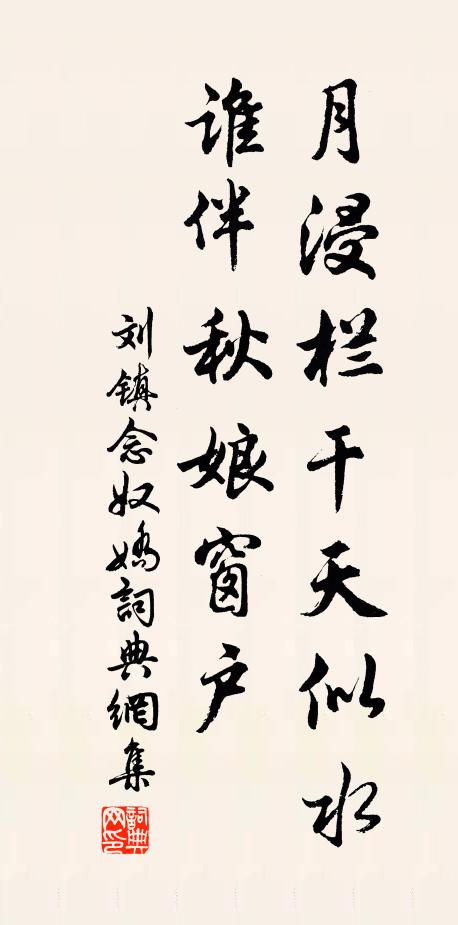 月浸栏干天似水
谁伴秋娘窗户
刘镇念奴娇詞典網集
詞典網印